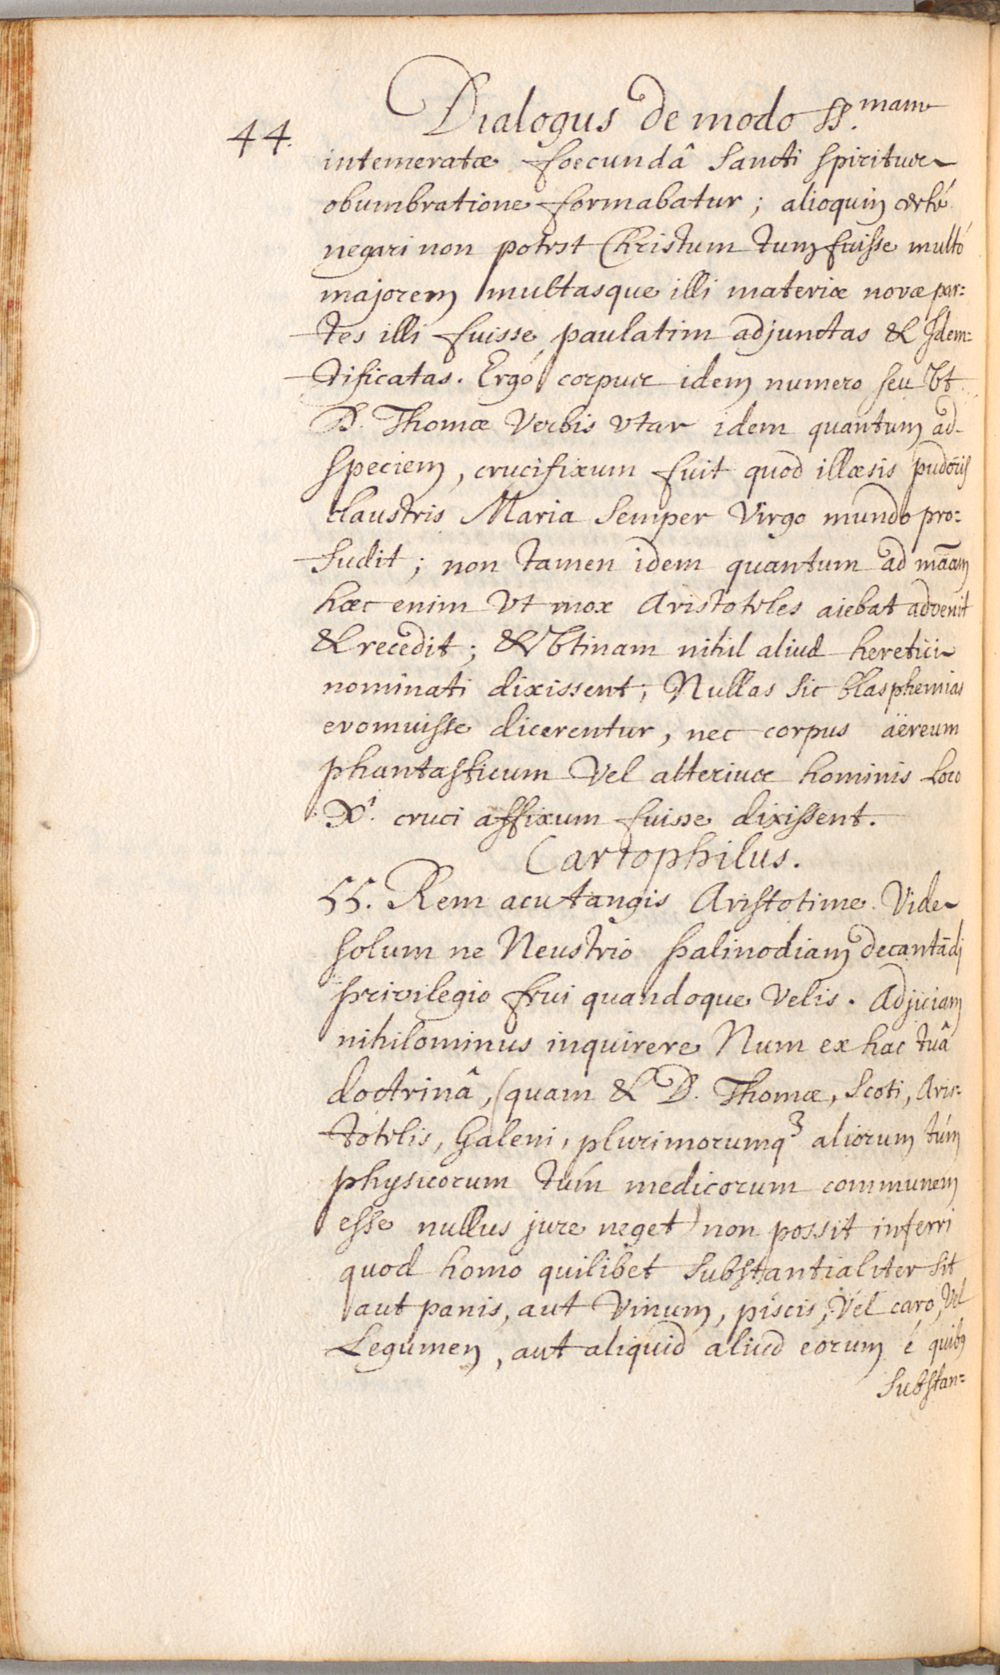 Dialogus de modo SS.mam
44.
intemeratæ foecundâ Sancti Spiritus
obumbratione formabatur; alioquin certé
negari non potest Christum tum fuisse multó
majorem multasque illi materiæ novæ par:
tes illi fuisse paulatim adjunctas & Idem:
tificatas. Ergó corpus idem numero seu Vt
D. Thomæ Verbis Vtar idem quantum ad
speciem, crucifixum fuit quod illæsis pudoris
claustris Maria Semper Virgo mundo pro:
fudit; non tamen idem quantum ad mãam
hæc enim Vt mox Aristoteles aiebat advenit
& recedit; & Vtinam nihil aliud heretici
nominati dixissent, Nullas sic blasphemias
evomuisse dicerentur, nec corpus äëreum
phantasticum Vel alterius hominis loco
Xi. cruci affixum fuisse dixissent.
Cartophilus.
55. Rem acu tangis Aristotime. Vide
solum ne Neustrio palinodiam decantãdj
privilegio frui quandoque Velis. Adjiciam
nihilominus inquirere Num ex hac tuâ
doctrinâ, (quam & D. Thomæ, Scoti, Aris:
totelis, Galeni, plurimorumq3 aliorum túm
physicorum túm medicorum communem
esse nullus jure neget) non possit inferri
quod homo quilibet Substantialiter sit
aut panis, aut Vinum, piscis, Vel caro, Vel
Legumen, aut aliquid aliud eorum é quibꝫ
Substan=